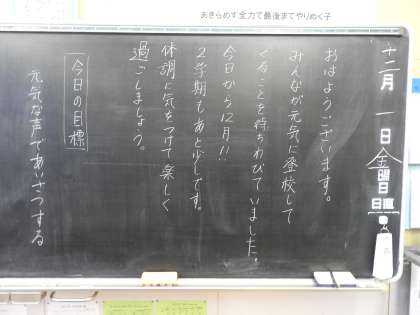 あきらめず全力で最後までやりぬく子
十二月一日金曜日
日直
おはようございます。
みんなが元気に登校して
くることを待ちわびていました。
今日から12月!!
2学期もあと少しです。
体調に気をつけて楽しく
過ごしましょう。
今日の目標
元気な声であいさつする